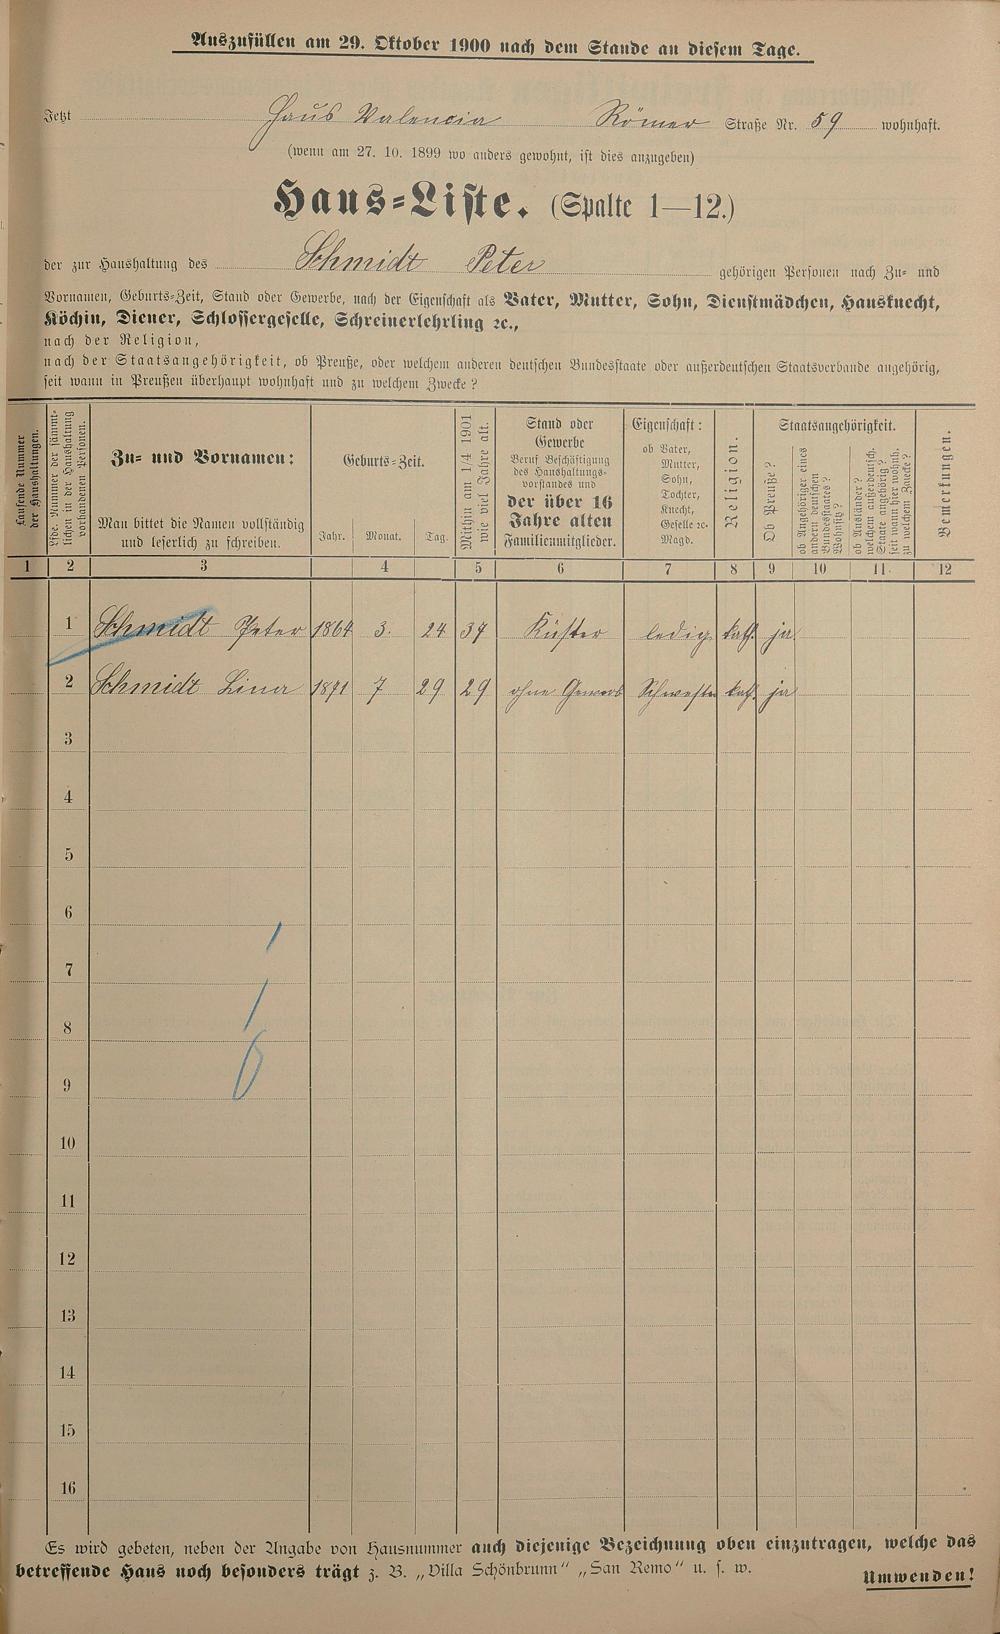 Auszufüllen am 29. Oktober 1900 nach dem Stande an diesem Tage.
Jetzt Haus Valencia Römer Straße Nr. 59 wohnhaft.
(wenn am 27. 10. 1899 wo anders gewohnt, ist dies anzugeben)
Haus=Liste. (Spalte 1—12.)
der zur Haushaltung des Schmidt Peter gehörigen Personen nach Zu= und
Vornamen, Geburts=Zeit, Stand oder Gewerbe, nach der Eigenschaft als Vater, Mutter, Sohn, Dienstmädchen, Hausknecht,
Köchin, Diener, Schlossergeselle, Schreinerlehrling ꝛc.,
nach der Religion,
nach der Staatsangehörigkeit, ob Preuße, oder welchem anderen deutschen Bundesstaate oder außerdeutschen Staatsverbande angehörig,
seit wann in Preußen überhaupt wohnhaft und zu welchem Zwecke?
Laufende Nummer
der Haushaltungen.
Lfde. Nummer der sämmt-
lichen in der Haushaltung
vorhandenen Personen.
Zu= und Vornamen:
Man bittet die Namen vollständig
und leserlich zu schreiben.
Geburts=Zeit.
Jahr. Monat. Tag.
Mithin am 1/4 1901
wie viel Jahre alt.
Stand oder
Gewerbe
Beruf Beschäftigung
des Haushaltungs-
vorstandes und
der über 16
Jahre alten
Familienmitglieder.
Eigenschaft:
ob Vater,
Mutter,
Sohn,
Tochter,
Knecht,
Geselle ꝛc.
Magd.
Religion.
Staatsangehörigkeit.
Ob Preuße?
ob Angehöriger eines
andern deutschen
Bundesstaates?
Wohnsitz?
ob Ausländer?
welchem außerdeutsch.
Staate angehörig?
seit wann hier wohnh.
zu welchem Zwecke?
Bemerkungen.
1 2 3 4 5 6 7 8 9 10 11. 12
1 Schmidt Peter 1864 3. 24 37 Küster ledig kath. ja
2 Schmidt Lina 1871 7 29 29 ohne Gewerb Schwester kath. ja
3
4
5
6
7
8
9
10
11
12
13
14
15
16
Es wird gebeten, neben der Angabe von Hausnummer auch diejenige Bezeichnung oben einzutragen, welche das
betreffende Haus noch besonders trägt z. B. „Villa Schönbrunn" „San Remo" u. s. w.
Umwenden!